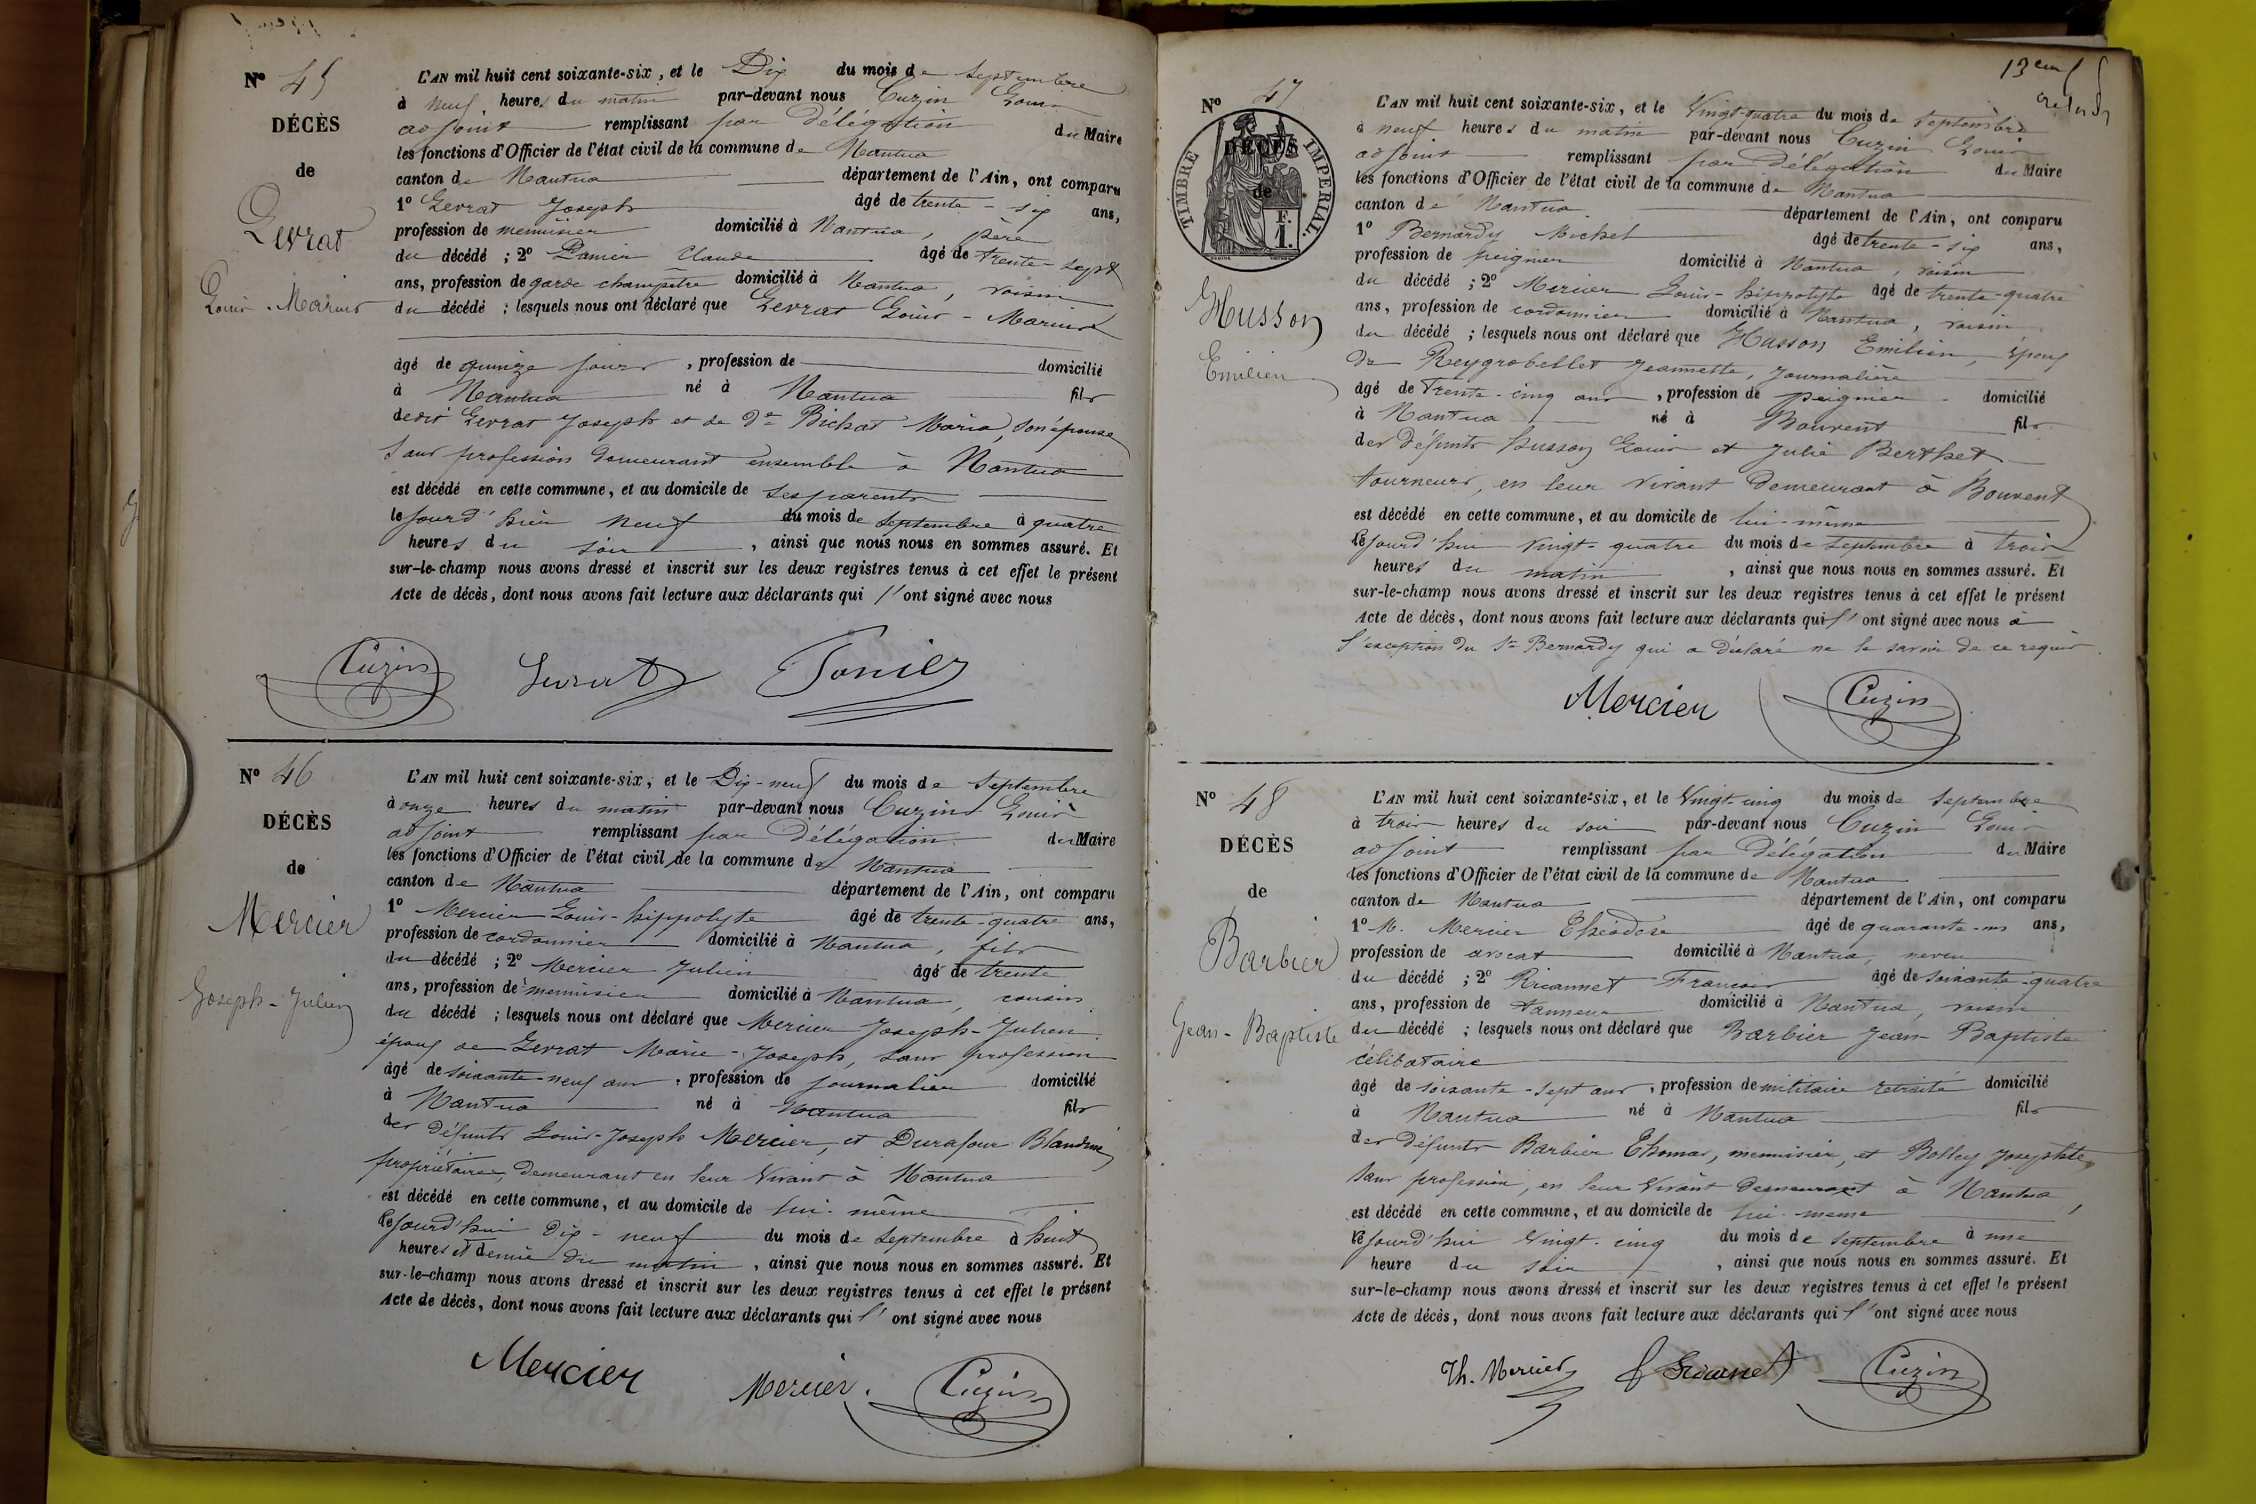 N° 45
DÉCÈS
de
Levrat
Louis-Marius
L'AN mil huit cent soixante-six, et le Dix du mois de Septembre
à neuf heures du matin par-devant nous Cuzin Louis
adjoint remplissant par délégation du Maire
les fonctions d'Officier de l'état civil de la commune de Nantua
canton de Nantua département de l'Ain, ont comparu
1° Levrat Joseph âgé de trente-six ans,
profession de menuisier domicilié à Nantua, père
du décédé ; 2° Panier Claude âgé de trente-sept
ans, profession de garde champêtre domicilié à Nantua, voisin
du décédé ; lesquels nous ont déclaré que Levrat Louis-Marius
âgé de quinze jours, profession de domicilié
à Nantua né à Nantua fils
dedit Levrat Joseph et de De Bichat Maria, son épouse
sans profession demeurant ensemble à Nantua
est décédé en cette commune, et au domicile de ses parents
le jourd'hier neuf du mois de Septembre à quatre
heures du soir, ainsi que nous nous en sommes assuré. Et
sur-le-champ nous avons dressé et inscrit sur les deux registres tenus à cet effet le présent
Acte de décès, dont nous avons fait lecture aux déclarants qui l'ont signé avec nous
Cuzin Levrat Panier
N° 46
DÉCÈS
de
Mercier
Joseph-Julien
L'AN mil huit cent soixante-six, et le Dix-neuf du mois de Septembre
à onze heures du matin par-devant nous Cuzin Louis
adjoint remplissant par délégation du Maire
les fonctions d'Officier de l'état civil de la commune de Nantua
canton de Nantua département de l'Ain, ont comparu
1° Mercier Louis-hippolyte âgé de trente-quatre ans,
profession de cordonnier domicilié à Nantua, fils
du décédé ; 2° Mercier Julien âgé de trente
ans, profession de menuisier domicilié à Nantua, cousin
du décédé ; lesquels nous ont déclaré que Mercier Joseph-Julien
époux de Levrat Marie-Joseph, sans profession
âgé de soixante-neuf ans, profession de journalier domicilié
à Nantua né à Nantua fils
des défunts Louis-Joseph Mercier, et Durafour Blandine
propriétaires, demeurant en leur vivant à Nantua
est décédé en cette commune, et au domicile de lui-même
le jourd'hui Dix-neuf du mois de Septembre à huit
heures et demie du matin, ainsi que nous nous en sommes assuré. Et
sur-le-champ nous avons dressé et inscrit sur les deux registres tenus à cet effet le présent
Acte de décès, dont nous avons fait lecture aux déclarants qui l'ont signé avec nous
Mercier Mercier. Cuzin
N° 47
DÉCÈS
de
TIMBRE IMPÉRIAL.
F.
1.
Husson
Emilien
L'AN mil huit cent soixante-six, et le Vingt-quatre du mois de Septembre
à neuf heures du matin par-devant nous Cuzin Louis
adjoint remplissant par délégation du Maire
les fonctions d'Officier de l'état civil de la commune de Nantua
canton de Nantua département de l'Ain, ont comparu
1° Bernardy Michel âgé de trente-six ans,
profession de peignier domicilié à Nantua, voisin
du décédé ; 2° Mercier Louis-hippolyte âgé de trente-quatre
ans, profession de cordonnier domicilié à Nantua, voisin
du décédé ; lesquels nous ont déclaré que Husson Emilien, époux
de Reygrobellet Jeannette, Journalière
âgé de Trente-cinq ans, profession de peignier domicilié
à Nantua né à Bouvent fils
des défunts husson Louis et Julie Berthet
tourneurs, en leur vivant demeurant à Bouvent
est décédé en cette commune, et au domicile de lui-même
le jourd'hui vingt-quatre du mois de Septembre à trois
heures du matin, ainsi que nous nous en sommes assuré. Et
sur-le-champ nous avons dressé et inscrit sur les deux registres tenus à cet effet le présent
Acte de décès, dont nous avons fait lecture aux déclarants qui l'ont signé avec nous à
l'exception du Sr Bernardy qui a déclaré ne le savoir de ce requis
Mercier Cuzin
N° 48
DÉCÈS
de
Barbier
Jean-Baptiste
L'AN mil huit cent soixante-six, et le Vingt-cinq du mois de Septembre
à trois heures du soir par-devant nous Cuzin Louis
adjoint remplissant par délégation du Maire
les fonctions d'Officier de l'état civil de la commune de Nantua
canton de Nantua département de l'Ain, ont comparu
1° M. Mercier Théodose âgé de quarante-ans,
profession de avocat domicilié à Nantua, neveu
du décédé ; 2° Ricannet François âgé de soixante-quatre
ans, profession de tanneur domicilié à Nantua, voisin
du décédé ; lesquels nous ont déclaré que Barbier Jean-Baptiste
célibataire
âgé de soixante-sept ans, profession de militaire retraité domicilié
à Nantua né à Nantua fils
des défunts Barbier Thomas, menuisier, et Bolley Josephte,
sans profession, en leur vivant demeurant à Nantua,
est décédé en cette commune, et au domicile de lui-même
le jourd'hui Vingt-cinq du mois de Septembre à une
heure du soir, ainsi que nous nous en sommes assuré. Et
sur-le-champ nous avons dressé et inscrit sur les deux registres tenus à cet effet le présent
Acte de décès, dont nous avons fait lecture aux déclarants qui l'ont signé avec nous
Th. Mercier Cuzin